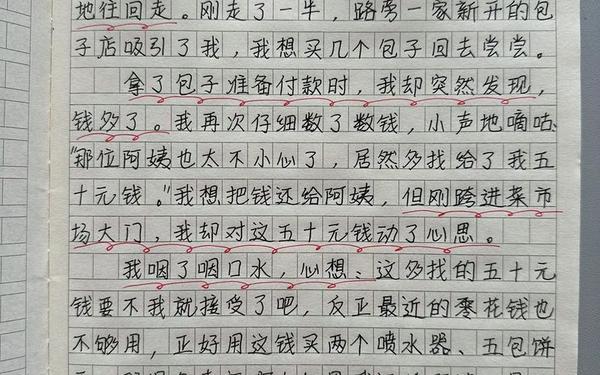 地往回走。刚走了一半,路旁一家新开的包
子店吸引了我,我想买几个包子回去尝尝。
拿了包子准备付款时,我却突然发现,
钱多了。我再次仔细数了数钱,小声地嘀咕:
"那位阿姨也太不小心了,居然多找给了我五
十元钱。"我想把钱还给阿姨,但刚跨进菜市
场大门,我却对这五十元钱动了心思。
我咽了咽口水,心想:这多找的五十元
钱要不我就接受了吧,反正最近的零花钱也
不够用,正好用这钱买两个喷水器、五包饼